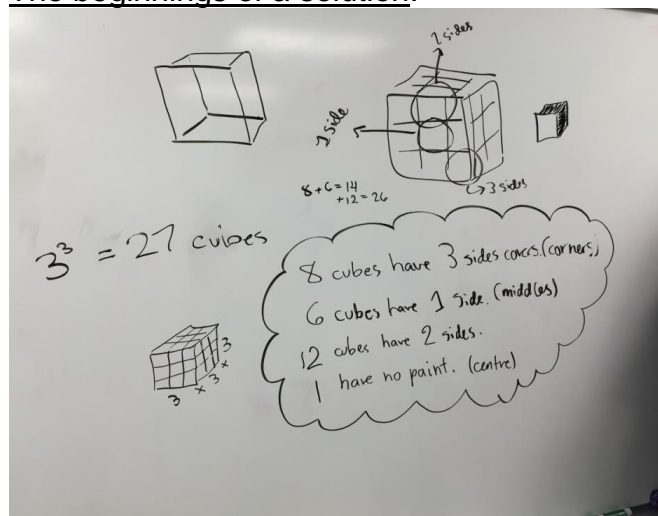 The beginnings of a solution.
2 sides
1 side
3 sides
8+6=14
+12=26
3³ = 27 cubes
8 cubes have 3 sides (corners)
6 cubes have 1 side. (middles)
12 cubes have 2 sides.
1 have no paint. (centre)
3
x
3
x
3